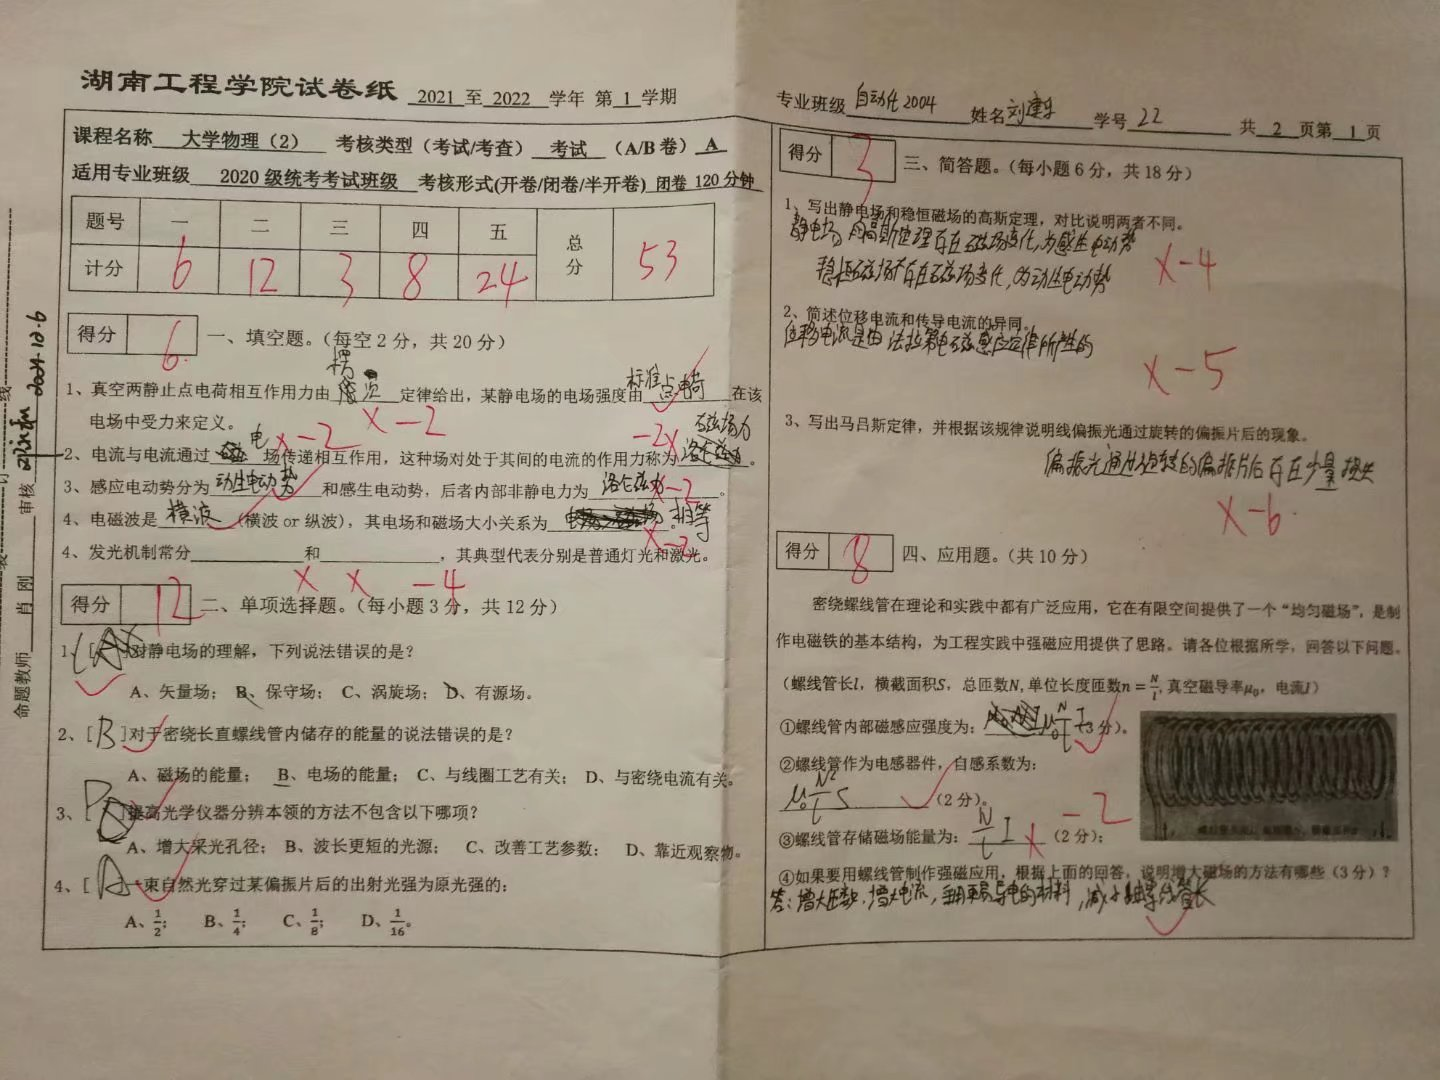 湖南工程学院试卷纸 2021 至 2022 学年 第 1 学期
课程名称 大学物理(2) 考核类型(考试/考查) 考试 (A/B 卷) A
适用专业班级 2020 级统考考试班级 考核形式(开卷/闭卷/半开卷) 闭卷 120 分钟
题号 一 二 三 四 五 总分
计分 6 12 3 8 24 53
得分 6 一、填空题。(每空 2 分，共 20 分)
1、真空两静止点电荷相互作用力由 定律给出，某静电场的电场强度由 标准点电荷 在该
电场中受力来定义。 X-2
2、电流与电流通过 电 场传递相互作用，这种场对处于其间的电流的作用力称为 磁场力 。 X-2 -2X
3、感应电动势分为 动生电动势 和感生电动势，后者内部非静电力为 洛仑兹力 。 X-2
4、电磁波是 横波 (横波 or 纵波)，其电场和磁场大小关系为 相等 。 X-2
4、发光机制常分 和 ，其典型代表分别是普通灯光和激光。
X X -4
得分 12 二、单项选择题。(每小题 3 分，共 12 分)
1、[ C ]对静电场的理解，下列说法错误的是？
A、矢量场； B、保守场； C、涡旋场； D、有源场。
2、[ B ]对于密绕长直螺线管内储存的能量的说法错误的是？
A、磁场的能量； B、电场的能量； C、与线圈工艺有关； D、与密绕电流有关。
3、[ D ]提高光学仪器分辨本领的方法不包含以下哪项？
A、增大采光孔径； B、波长更短的光源； C、改善工艺参数； D、靠近观察物。
4、[ A ]一束自然光穿过某偏振片后的出射光强为原光强的：
A、1/2； B、1/4； C、1/8； D、1/16。
命题教师 肖 刚 审核 2021.12.6
订 线
专业班级 自动化2004 姓名 刘建乐 学号 22 共 2 页第 1 页
得分 3 三、简答题。(每小题 6 分，共 18 分)
1、写出静电场和稳恒磁场的高斯定理，对比说明两者不同。
静电场 高斯定理存在磁场变化,为感生电动势
稳恒磁场不存在磁场变化,为动生电动势
X-4
2、简述位移电流和传导电流的异同。
位移电流是由 法拉第电磁感应定律所产生的
X-5
3、写出马吕斯定律，并根据该规律说明线偏振光通过旋转的偏振片后的现象。
偏振光通过旋转的偏振片后存在少量损失
X-6
得分 8 四、应用题。(共 10 分)
密绕螺线管在理论和实践中都有广泛应用，它在有限空间提供了一个“均匀磁场”，是制
作电磁铁的基本结构，为工程实践中强磁应用提供了思路。请各位根据所学，回答以下问题。
(螺线管长l，横截面积S，总匝数N, 单位长度匝数n = N/l, 真空磁导率μ0，电流I)
①螺线管内部磁感应强度为: μ0 N/l I (3 分)。
②螺线管作为电感器件，自感系数为:
μ0 N²/l S (2 分)。
③螺线管存储磁场能量为: N/l I (2 分)； X -2
④如果要用螺线管制作强磁应用，根据上面的回答，说明增大磁场的方法有哪些 (3 分)？
答:增大匝数,增大电流,采用更易导电的材料,减小 管长